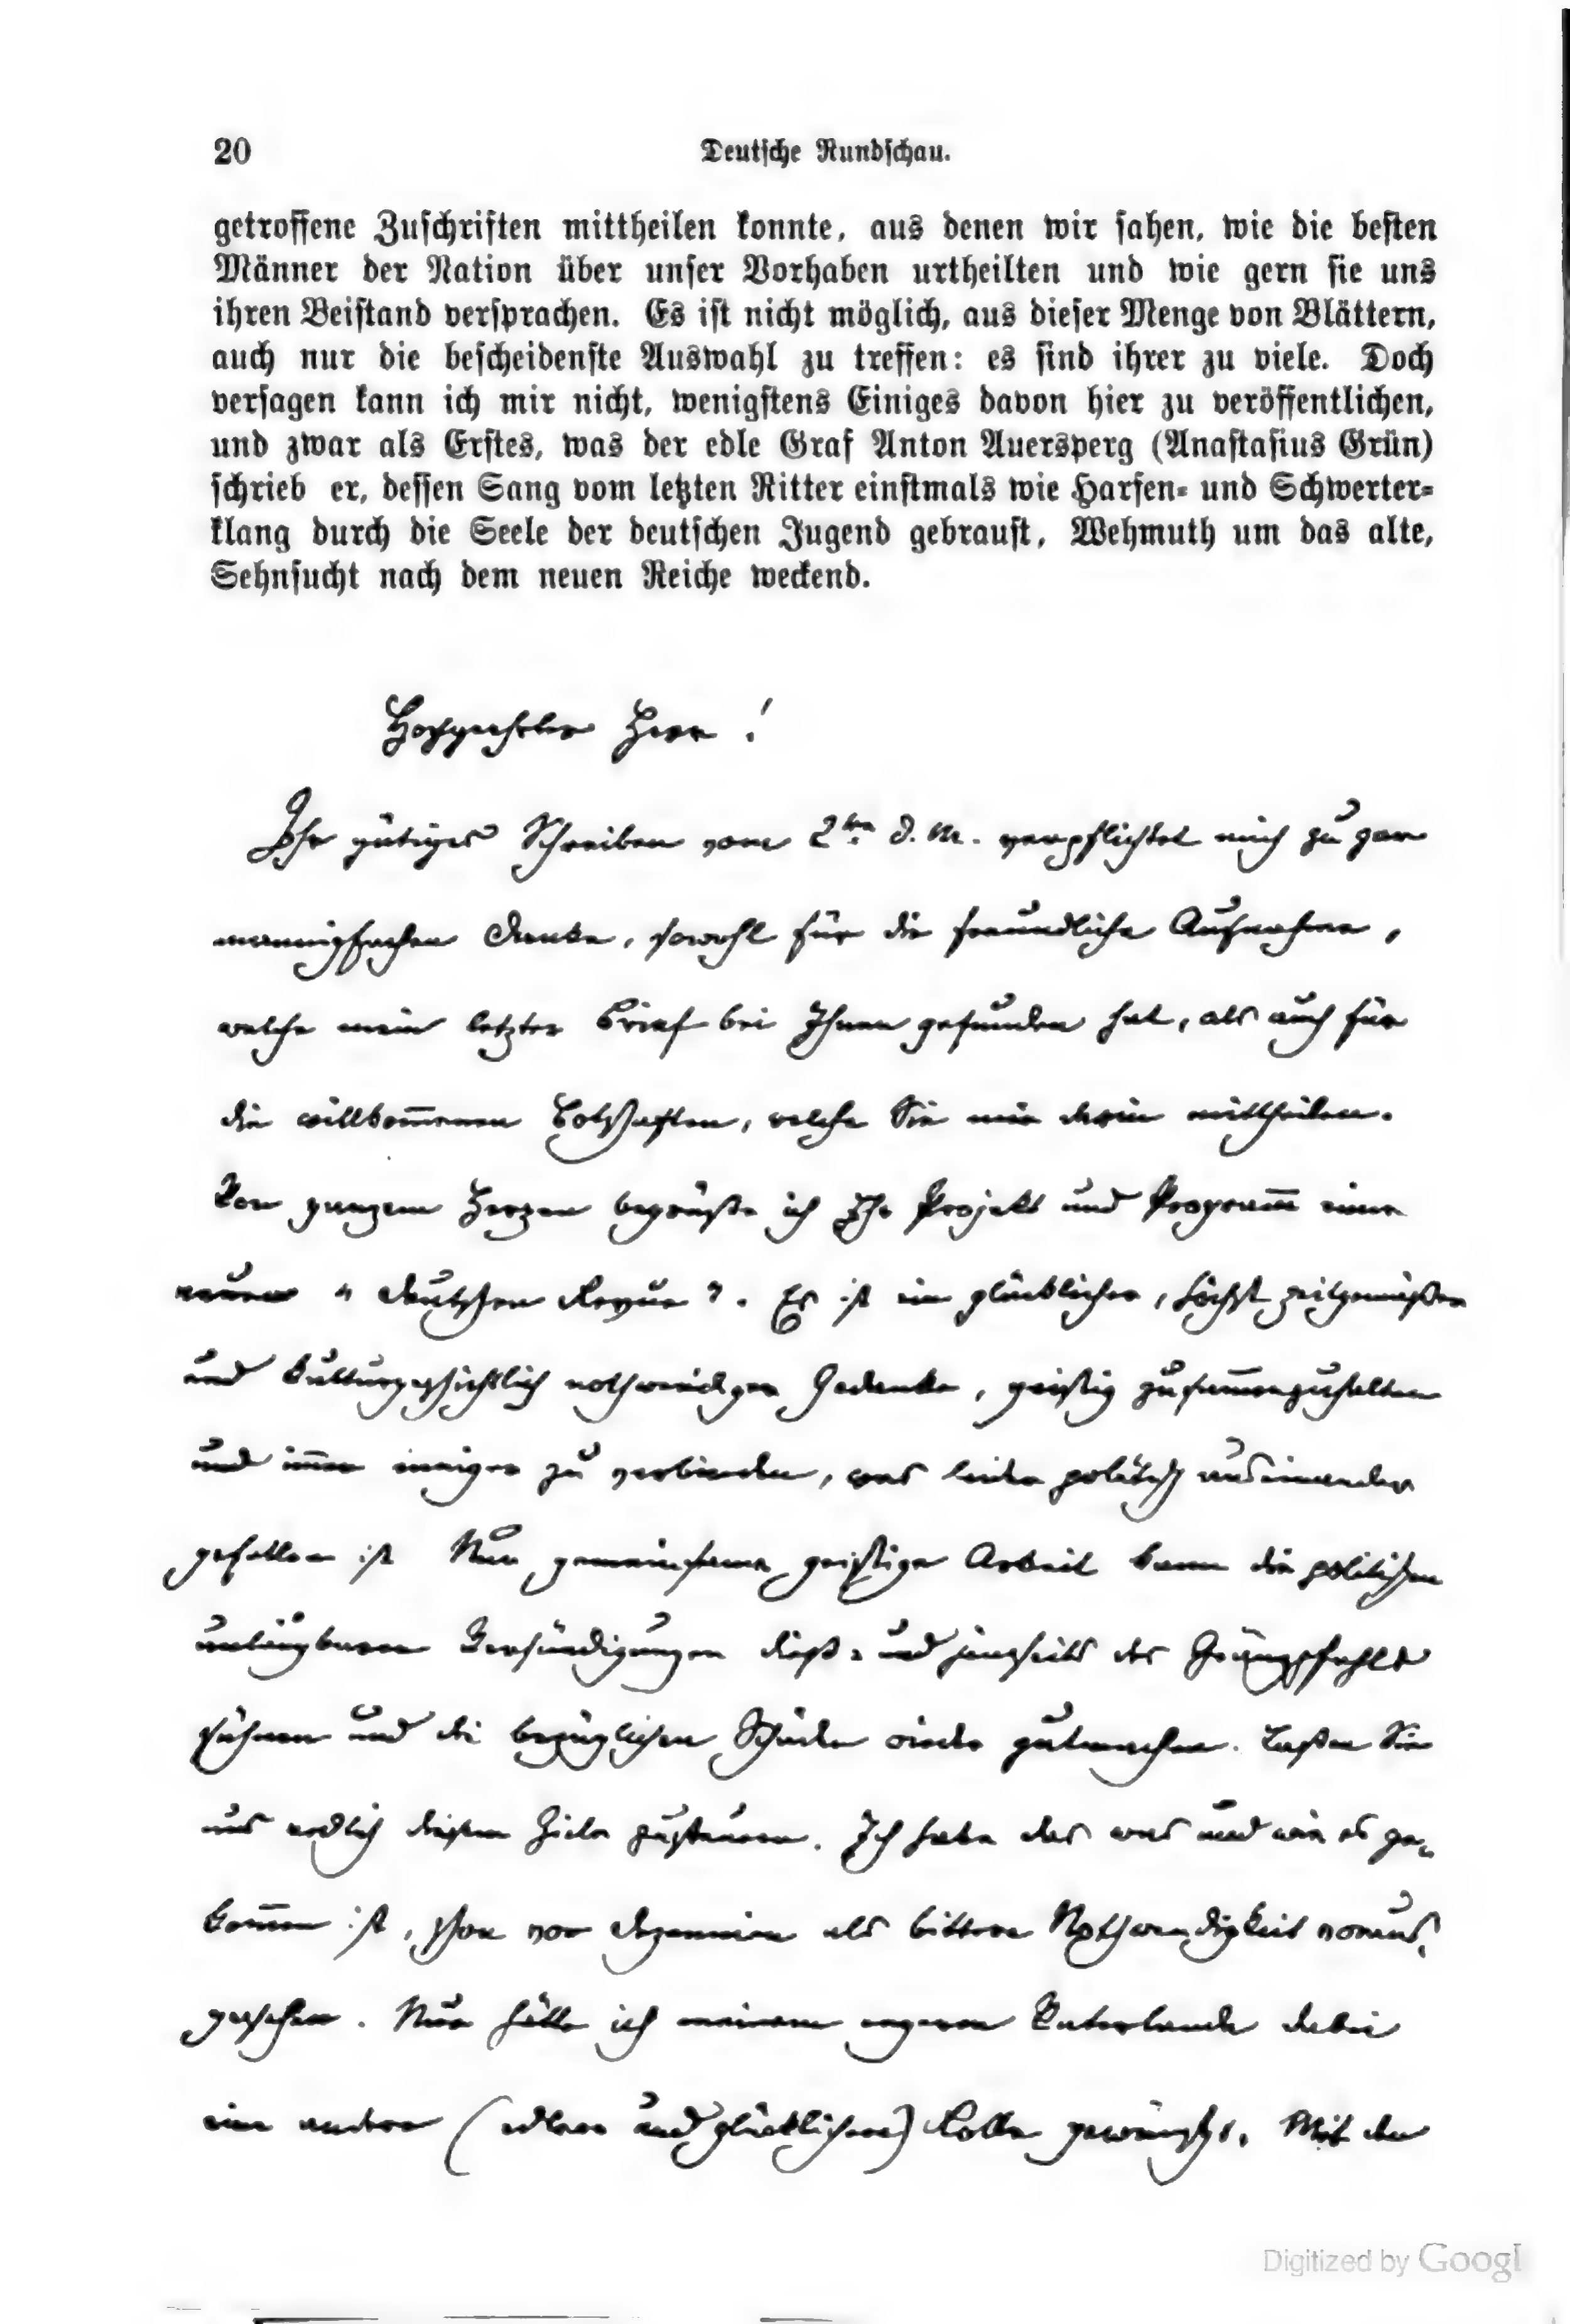 20
Deutsche Rundschau.
getroffene Zuschriften mittheilen konnte, aus denen wir sahen, wie die besten
Männer der Nation über unser Vorhaben urtheilten und wie gern sie uns
ihren Beistand versprachen. Es ist nicht möglich, aus dieser Menge von Blättern,
auch nur die bescheidenste Auswahl zu treffen: es sind ihrer zu viele. Doch
versagen kann ich mir nicht, wenigstens Einiges davon hier zu veröffentlichen,
und zwar als Erstes, was der edle Graf Anton Auersperg (Anastasius Grün)
schrieb er, dessen Sang vom letzten Ritter einstmals wie Harfen- und Schwerter-
klang durch die Seele der deutschen Jugend gebraust, Wehmuth um das alte,
Sehnsucht nach dem neuen Reiche weckend.
Hochgeehrter Herr!
Ihr gütiges Schreiben vom 2ten d. M. verpflichtet mich zu gar
mannigfachem Danke, sowohl für die freundliche Aufnahme,
welche mein letzter Brief bei Ihnen gefunden hat, als auch für
die willkom̅enen Botschaften, welche Sie mir darin mittheilen.
Von ganzem Herzen begrüße ich Ihr Projekt und Program̅ einer
neuen "deutschen Revue". Es ist ein glücklicher, höchst zeitgemäßer
und kulturgeschichtlich nothwendiger Gedanke, geistig zusam̅enzuhalten
und im̅er inniger zu verbinden, was leider politisch auseinander
gefallen ist Nur gemeinsame geistige Arbeit kann die politischen
unläugbaren Versündigungen dieß- und jenseits des Gränzpfahls
sühnen und die bezüglichen Schäden wieder gutmachen. Laßen Sie
uns redlich diesem Ziele zusteuern. Ich habe das was und wie es ge-
kom̅en ist, schon vor Dezennien als bittere Nothwendigkeit voraus-
gesehen. Nur hätte ich meinem engeren Vaterlande dabei
eine andere (edlere und glücklichere) Rolle gewünscht. Mit der
Digitized by Googl